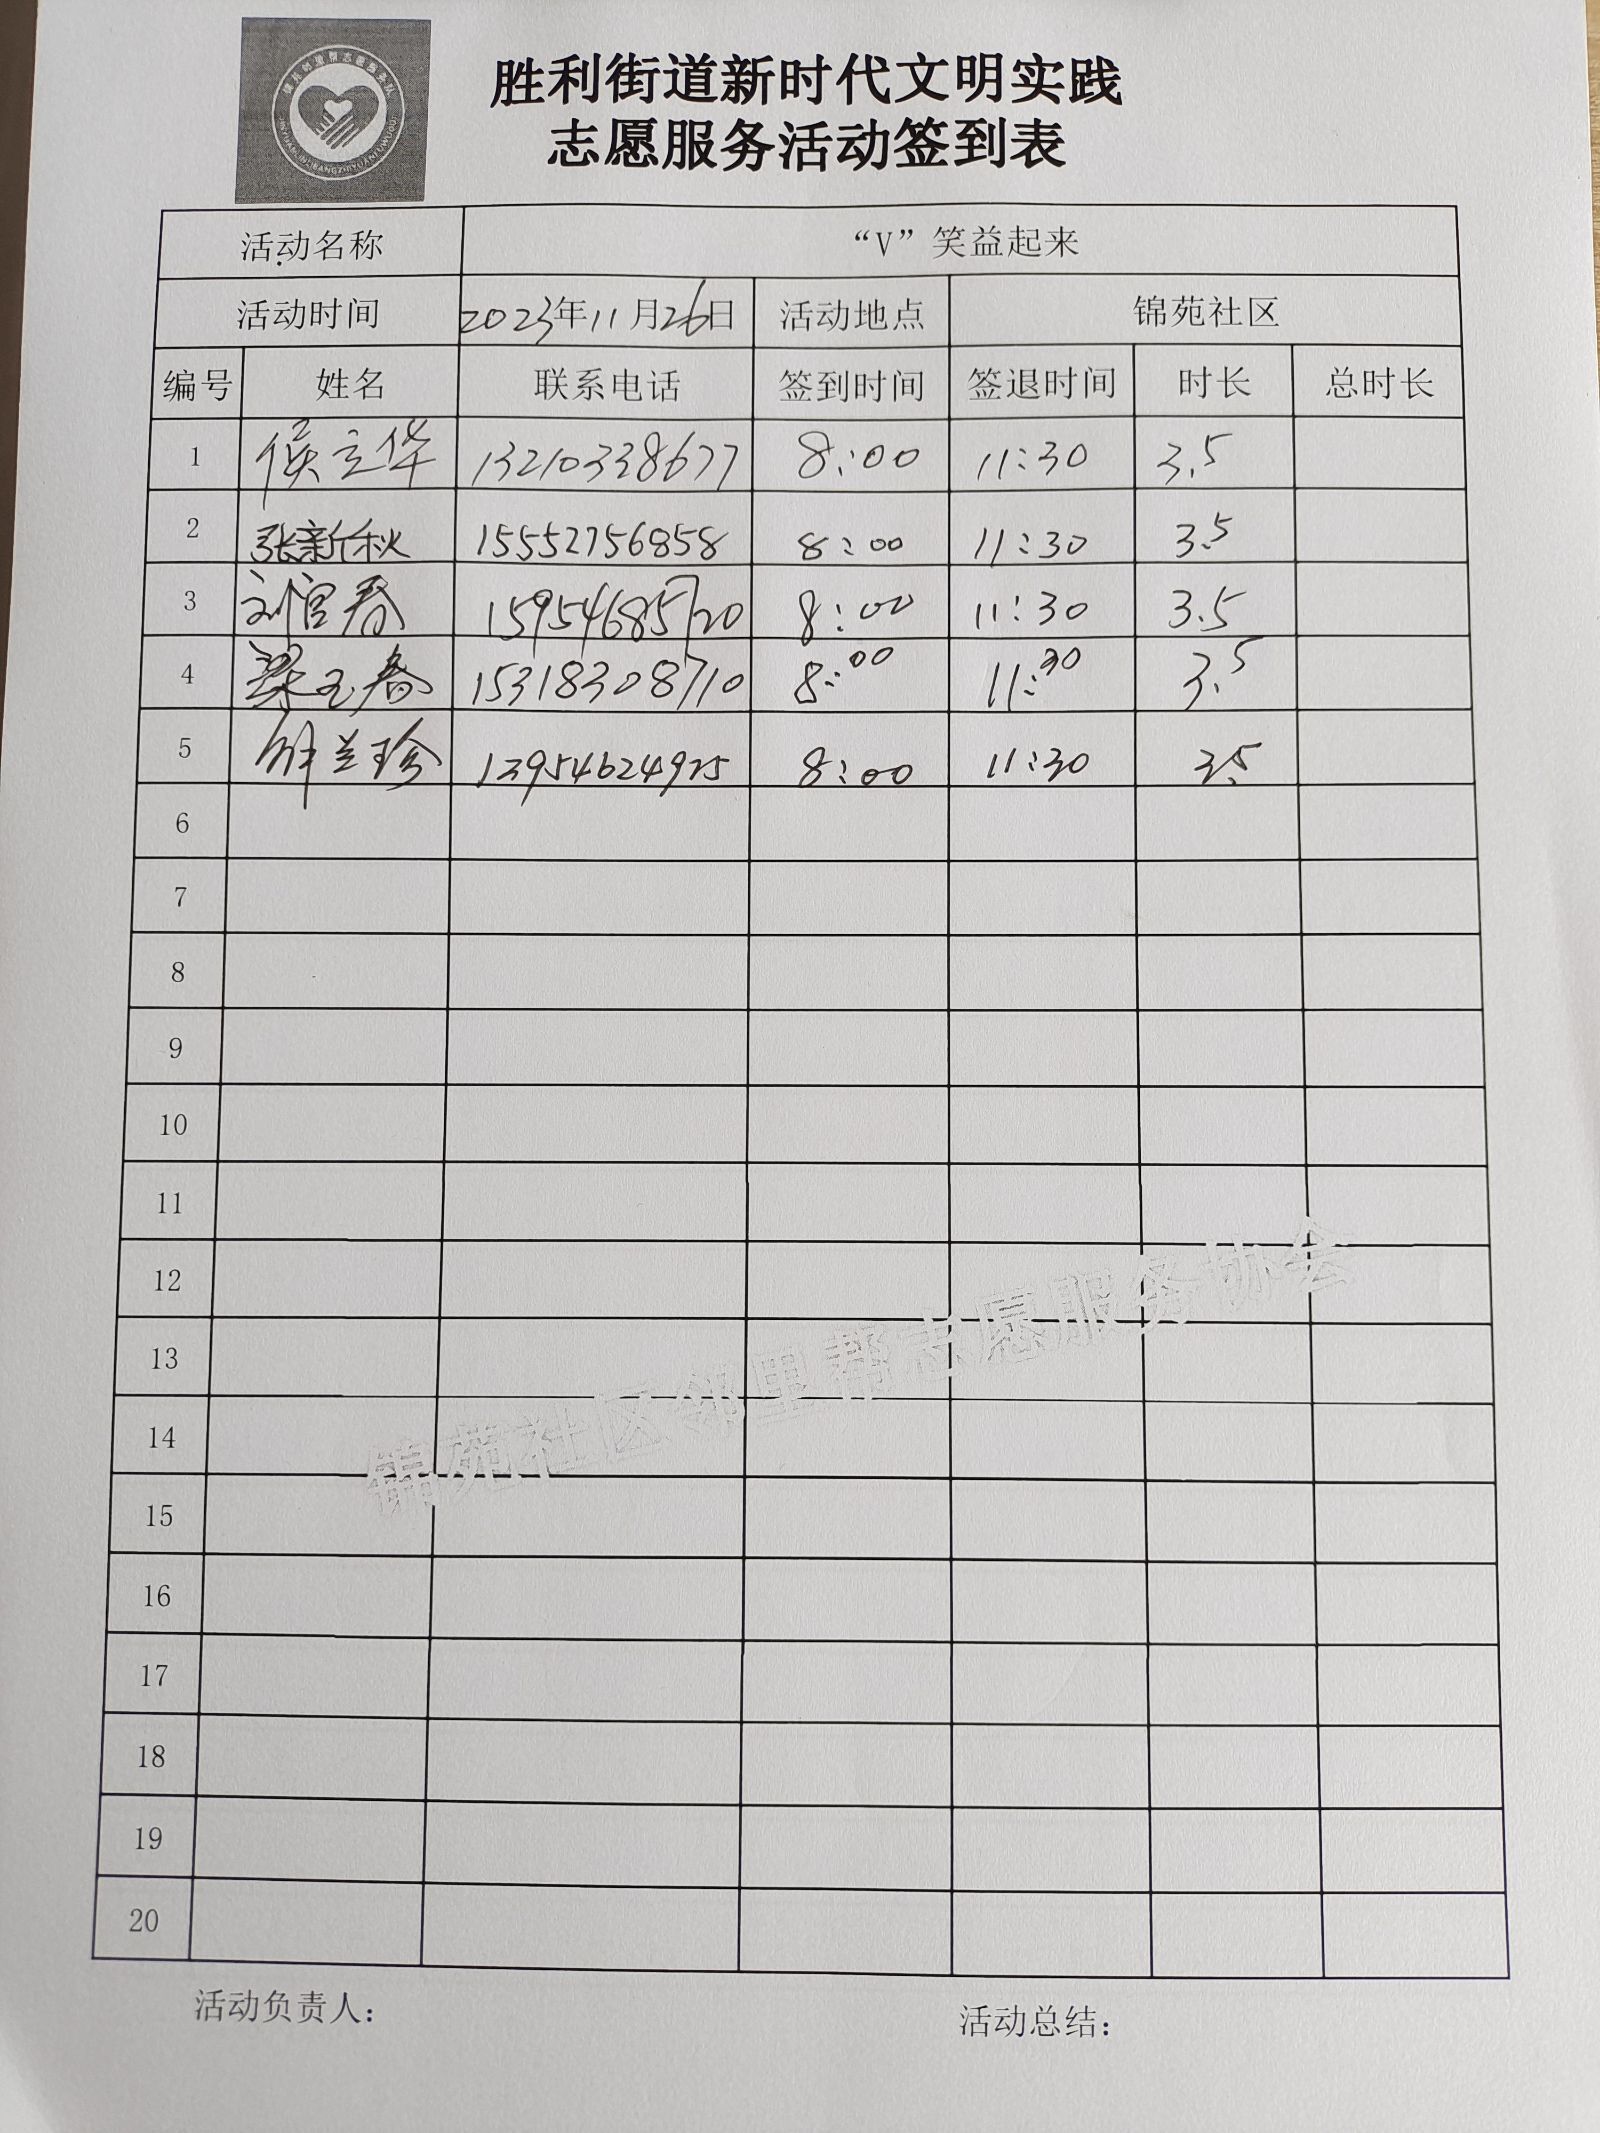 胜利街道新时代文明实践
志愿服务活动签到表
活动名称 “V”笑益起来
活动时间 2023年11月26日 活动地点 锦苑社区
编号 姓名 联系电话 签到时间 签退时间 时长 总时长
1 侯立华 13210338677 8:00 11:30 3.5
2 张新秋 15552756858 8:00 11:30 3.5
3 刘官春 15954685720 8:00 11:30 3.5
4 梁玉春 15318308710 8:00 11:30 3.5
5 解兰珍 13954624925 8:00 11:30 3.5
6
7
8
9
10
11
12
13
14
15
16
17
18
19
20
锦苑社区邻里帮志愿服务协会
活动负责人：
活动总结：